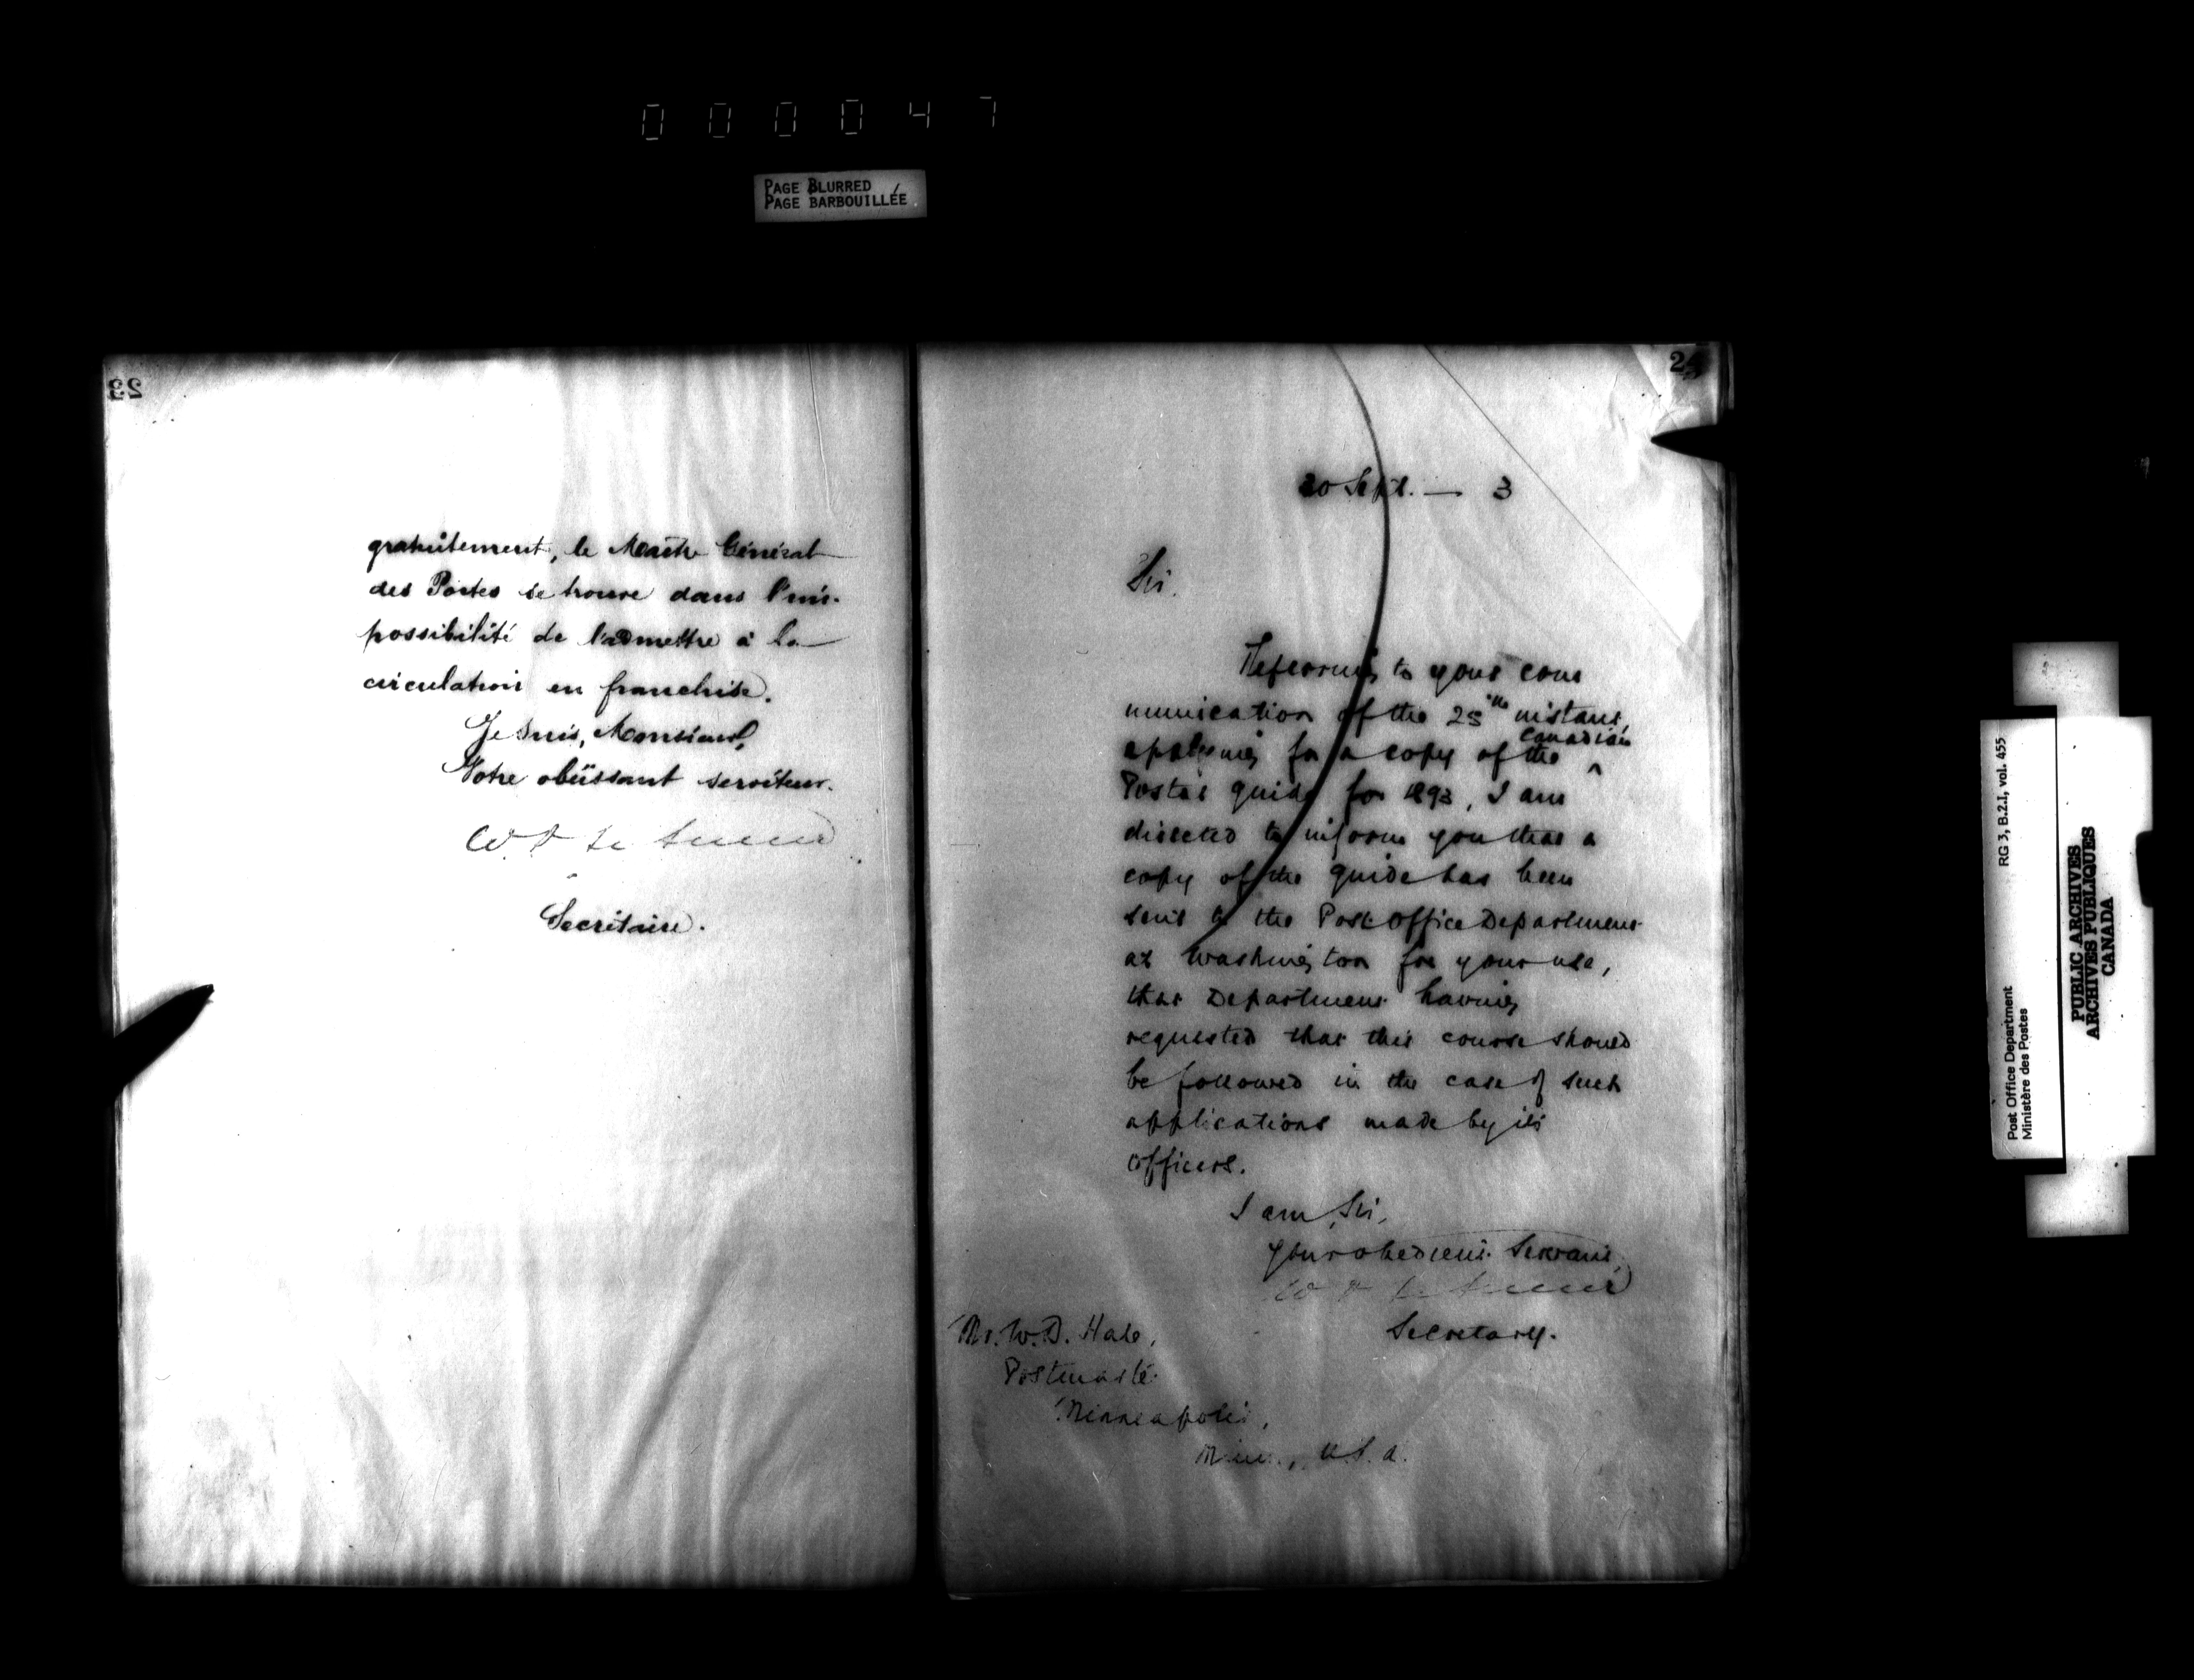 000047
PAGE BLURRED
PAGE BARBOUILLÉE
23
gratuitement, le Maître Général
des Postes se trouve dans l'im-
possibilité de l'admettre à la
circulation en franchise.
Je suis, Monsieur,
Votre obéissant serviteur.
W. D. Le Sueur
Secrétaire.
24
30 Sept. — 3
Sir,
Referring to your com
munication of the 25th instant,
applying for a copy of the ^ Canadian
Postal guide for 1893, I am
directed to inform you that a
copy of the guide has been
sent to the Post Office Department
at Washington for your use,
that Department having
requested that this course should
be followed in the case of such
applications made by its
officers.
I am, Sir,
Your obedient Servant,
W. D. Le Sueur
Secretary.
Mr. W. D. Hale,
Postmaster
Minneapolis,
Minn., U.S.A.
RG 3, B.2.I, vol. 455
Post Office Department
Ministère des Postes
PUBLIC ARCHIVES
ARCHIVES PUBLIQUES
CANADA